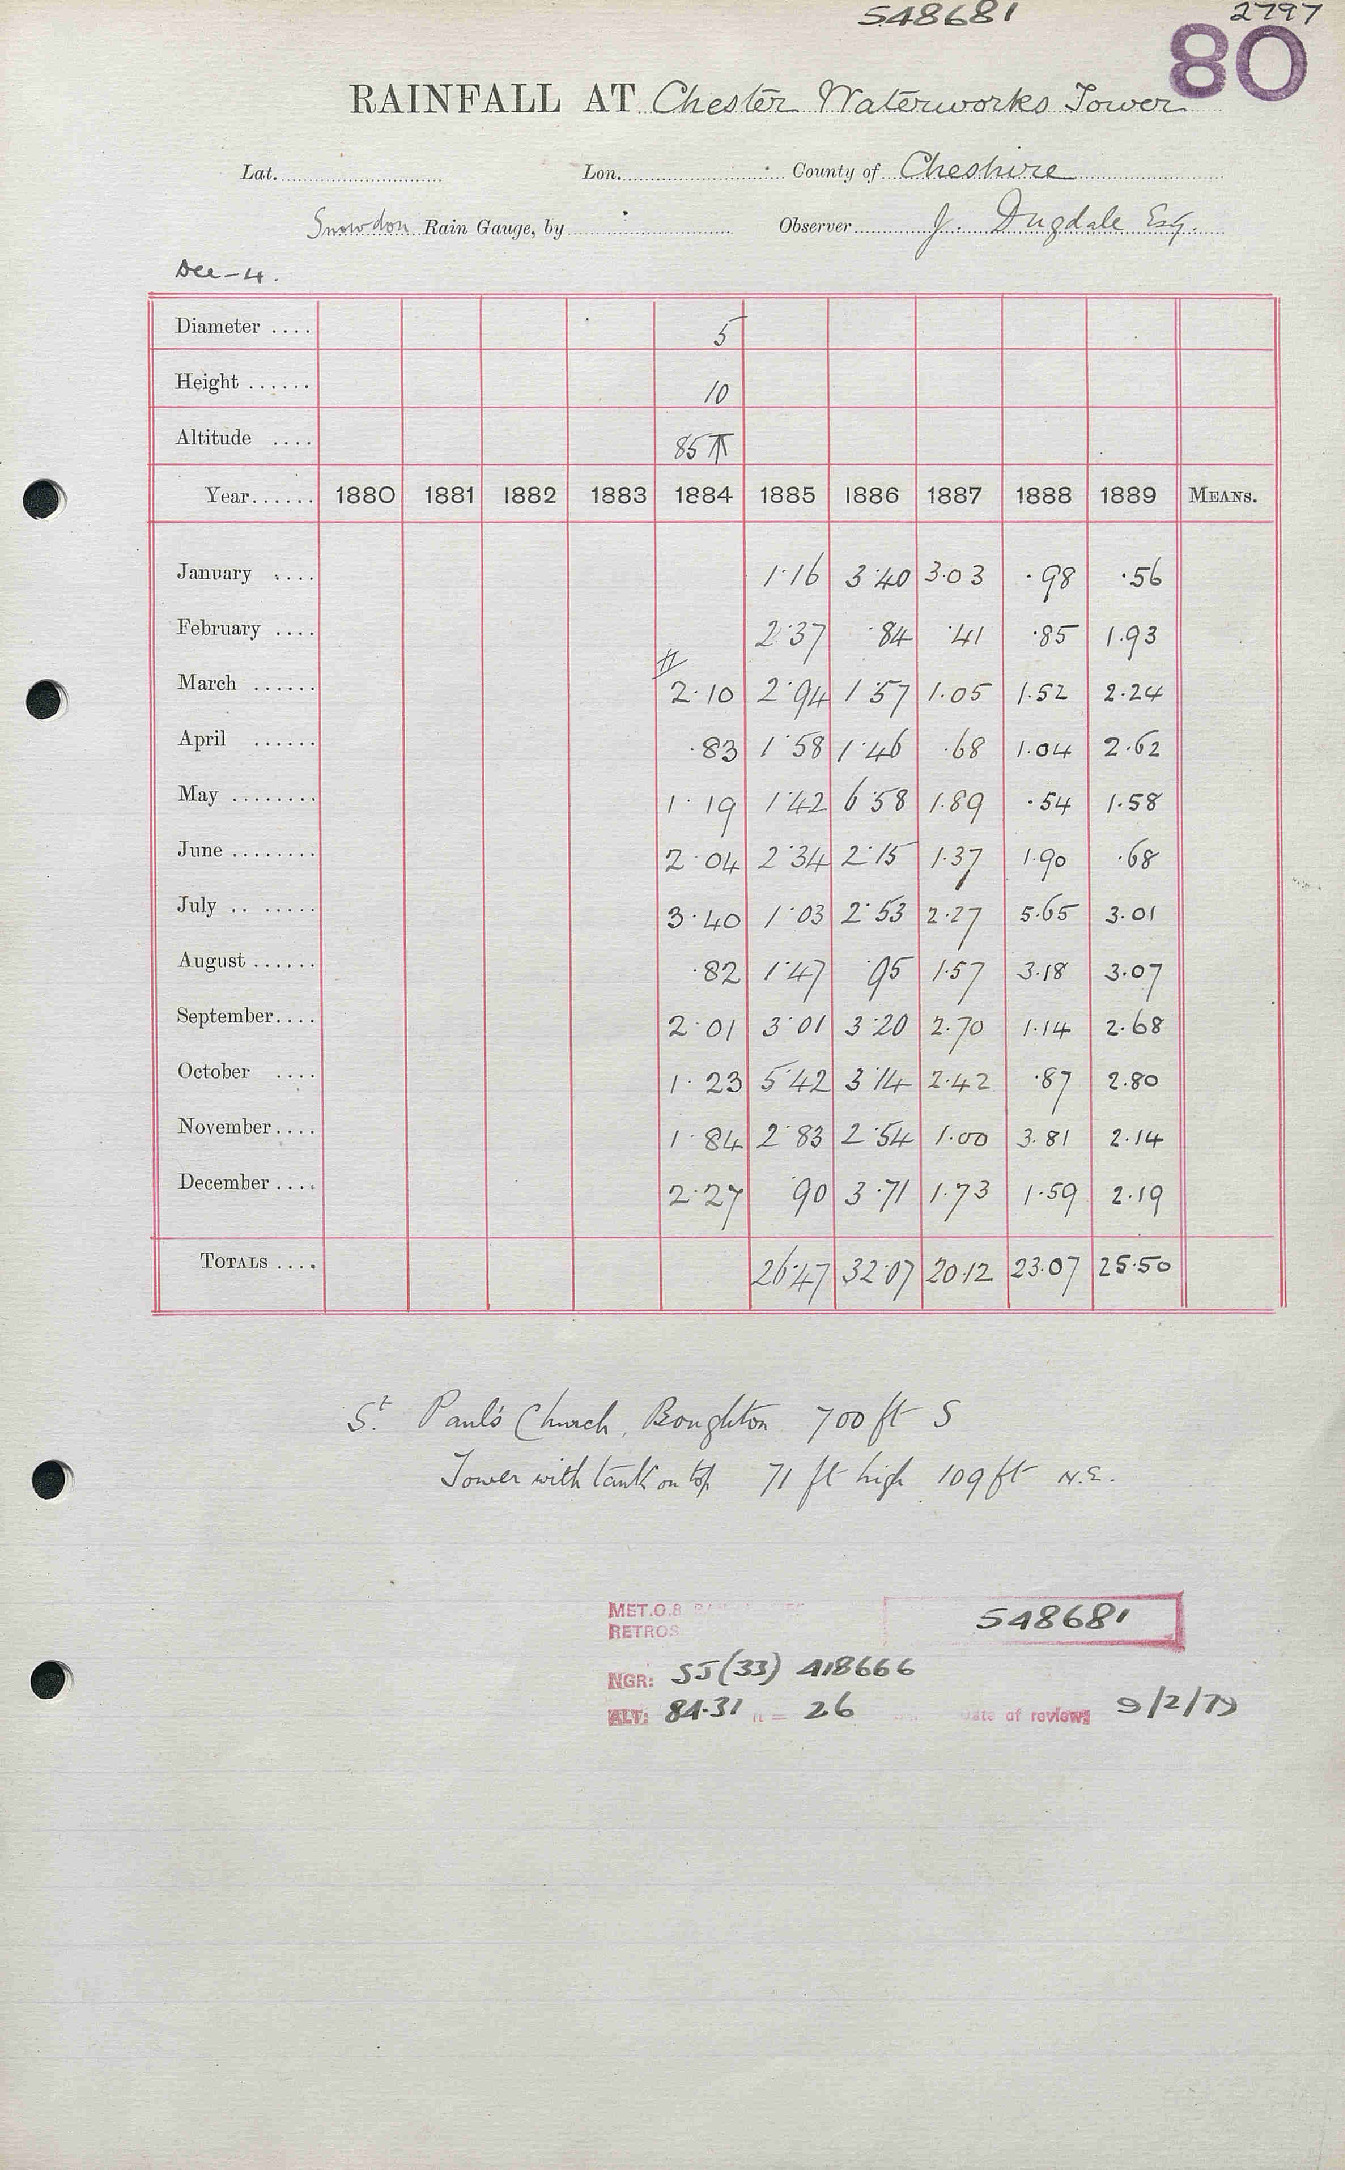 548681 2797
80
RAINFALL AT Chester Waterworks Tower
Lat. Lon. County of Cheshire
Snowdon Rain Gauge, by Observer J. Dugdale Esq.
Dec-4.
Diameter .... 5
Height ...... 10
Altitude .... 85
Year...... 1880 1881 1882 1883 1884 1885 1886 1887 1888 1889 MEANS.
January .... 1.16 3.40 3.03 .98 .56
February .... 2.37 .84 .41 .85 1.93
March ...... 2.10 2.94 1.57 1.05 1.52 2.24
April ...... .83 1.58 1.46 .68 1.04 2.62
May ........ 1.19 1.42 6.58 1.89 .54 1.58
June ........ 2.04 2.34 2.15 1.37 1.90 .68
July .. ..... 3.40 1.03 2.53 2.27 5.65 3.01
August ...... .82 1.47 .95 1.57 3.18 3.07
September.... 2.01 3.01 3.20 2.70 1.14 2.68
October .... 1.23 5.42 3.14 2.42 .87 2.80
November.... 1.84 2.83 2.54 1.00 3.81 2.14
December.... 2.27 .90 3.71 1.73 1.59 2.19
TOTALS .... 26.47 32.07 20.12 23.07 25.50
St. Paul's Church, Boughton 700 ft S
Tower with tank on top 71 ft high 109 ft N.E.
MET.O.8
RETROS 548681
NGR: SJ(33) 418666
ALT: 84.31 ft = 26 Date of review: 9/2/79